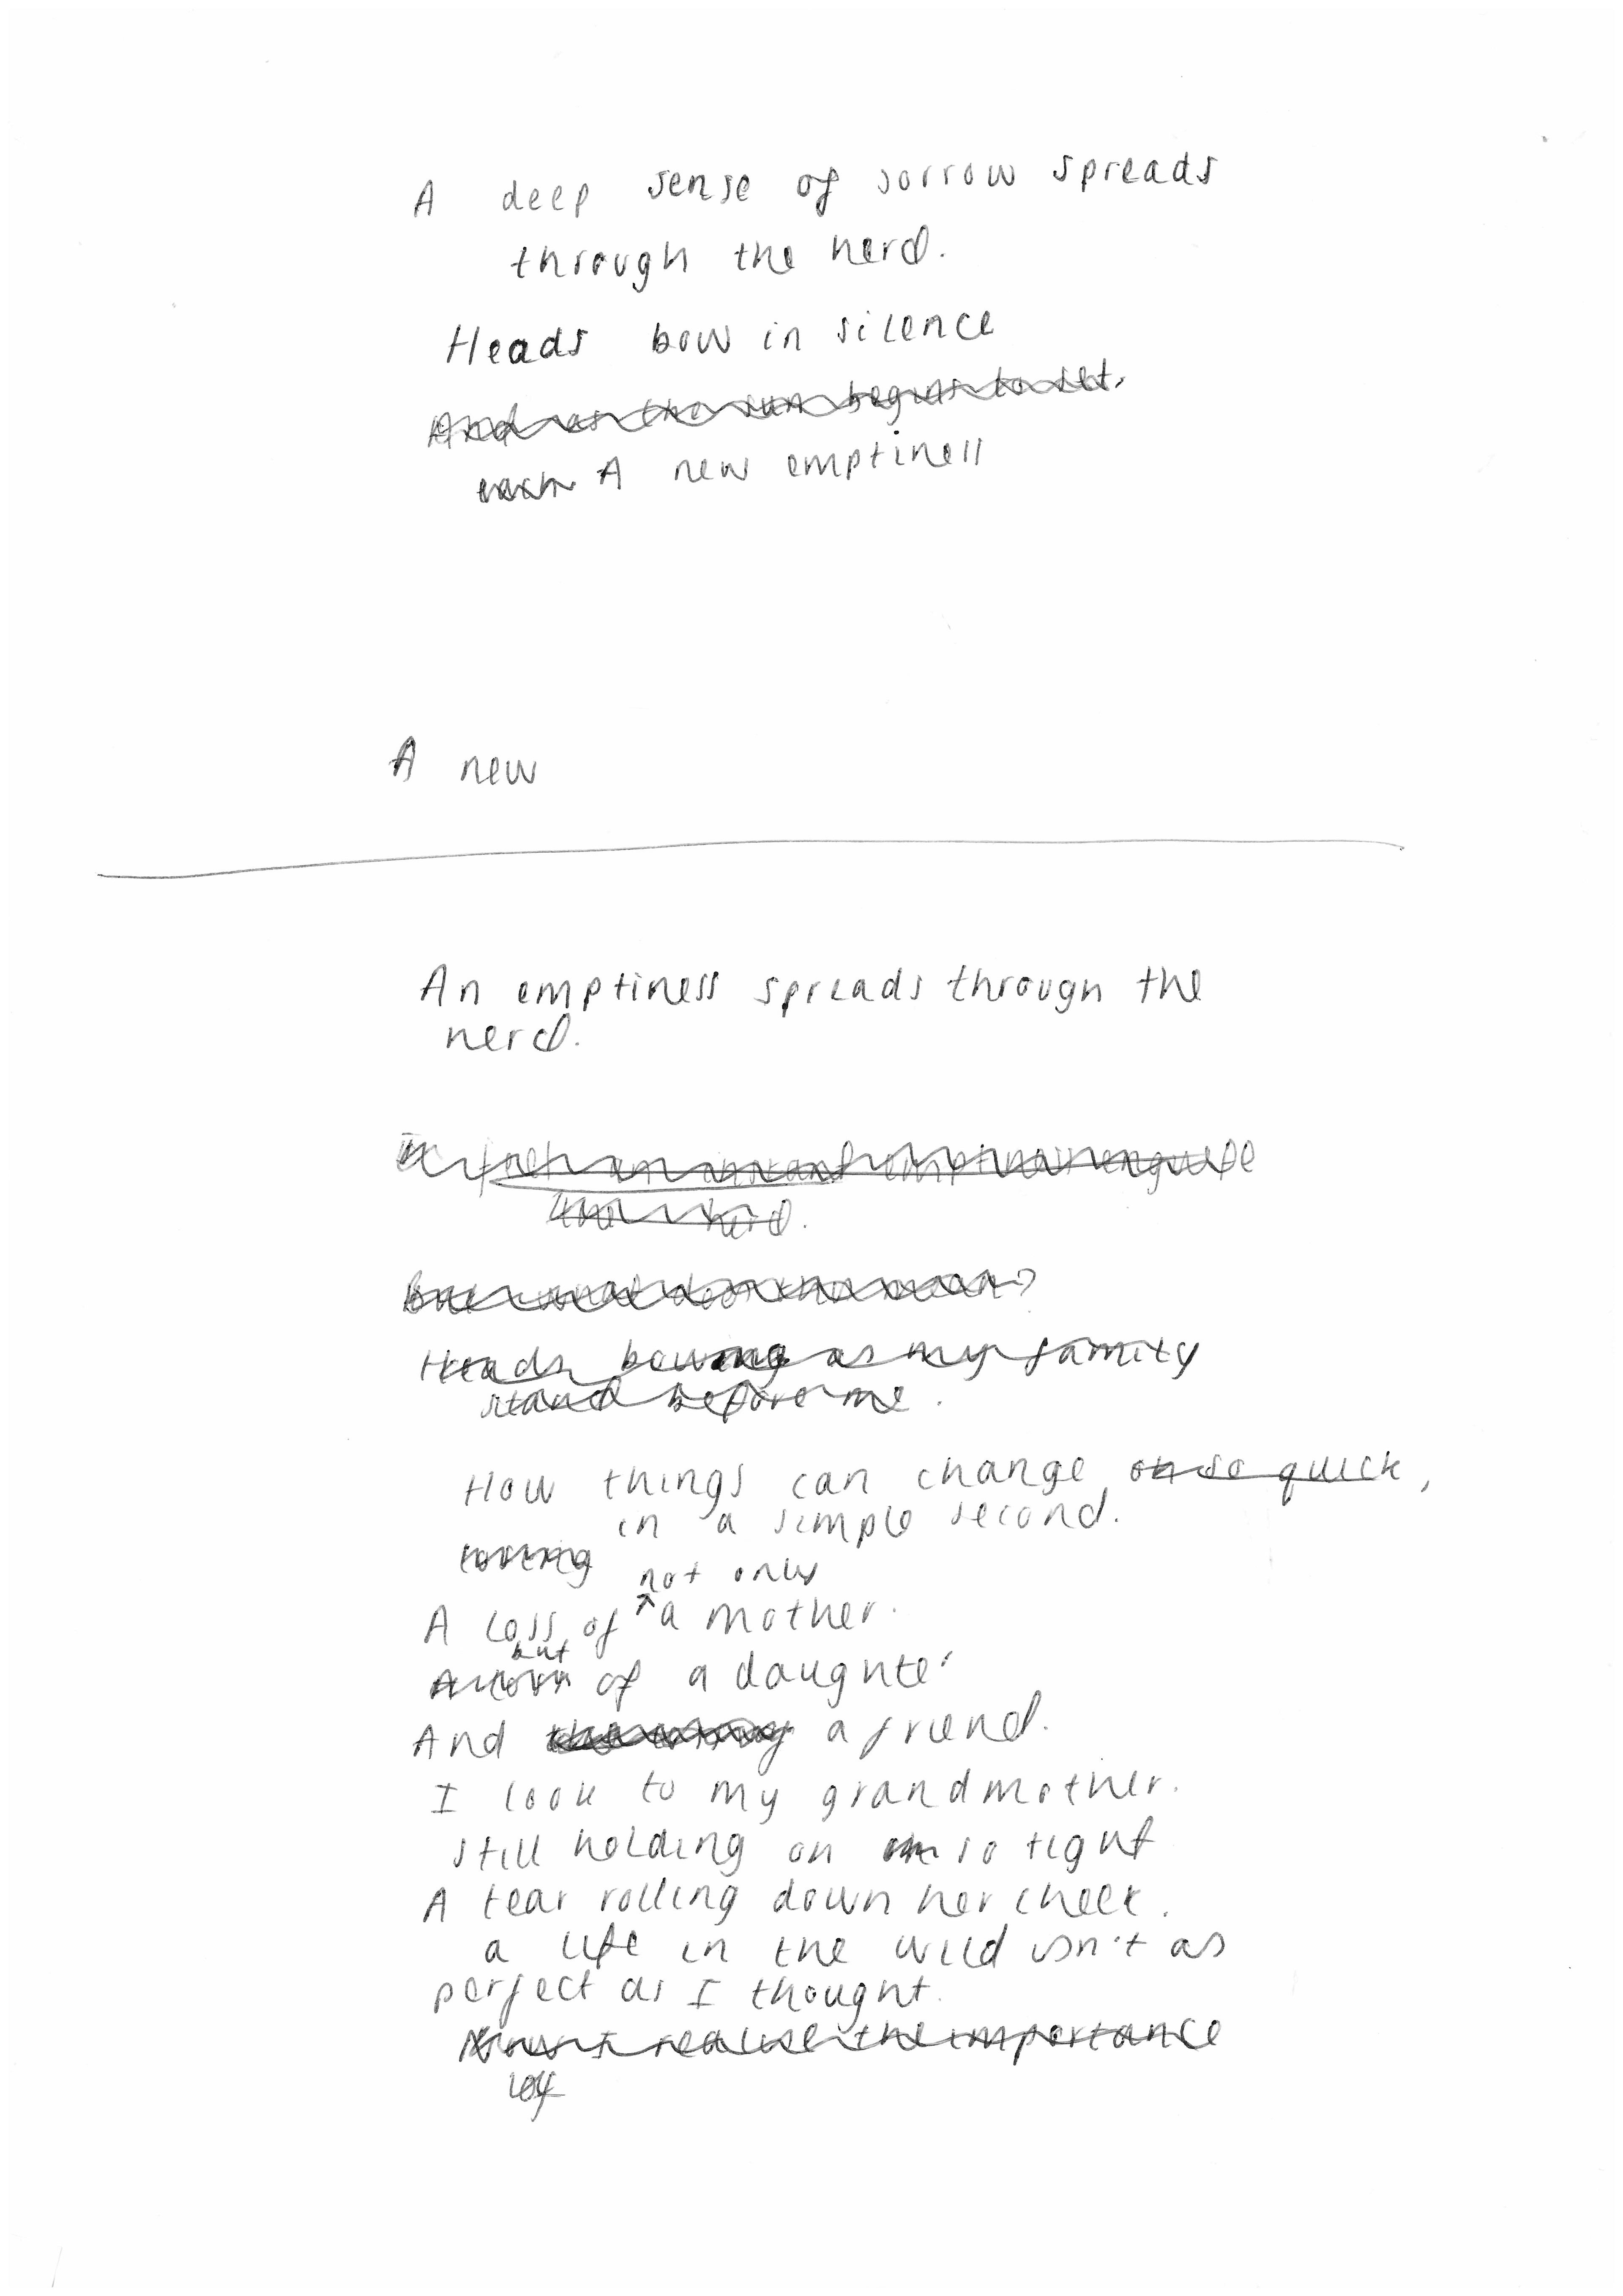 A deep sense of sorrow spreads
through the herd.
Heads bow in silence
And as the sun begins to set.
each A new emptiness
A new
An emptiness spreads through the
herd.
emptiness engulfe
the herd.
But what does this mean?
Heads bowing as my family
stand before me.
How things can change oh so quick,
in a simple second.
losing
not only
A loss of a mother.
but
A loss of a daughter
And a friend.
I look to my grandmother.
still holding on so tight
A tear rolling down her cheek.
a life in the wild isn't as
perfect as I thought.
Now I realise the importance
of